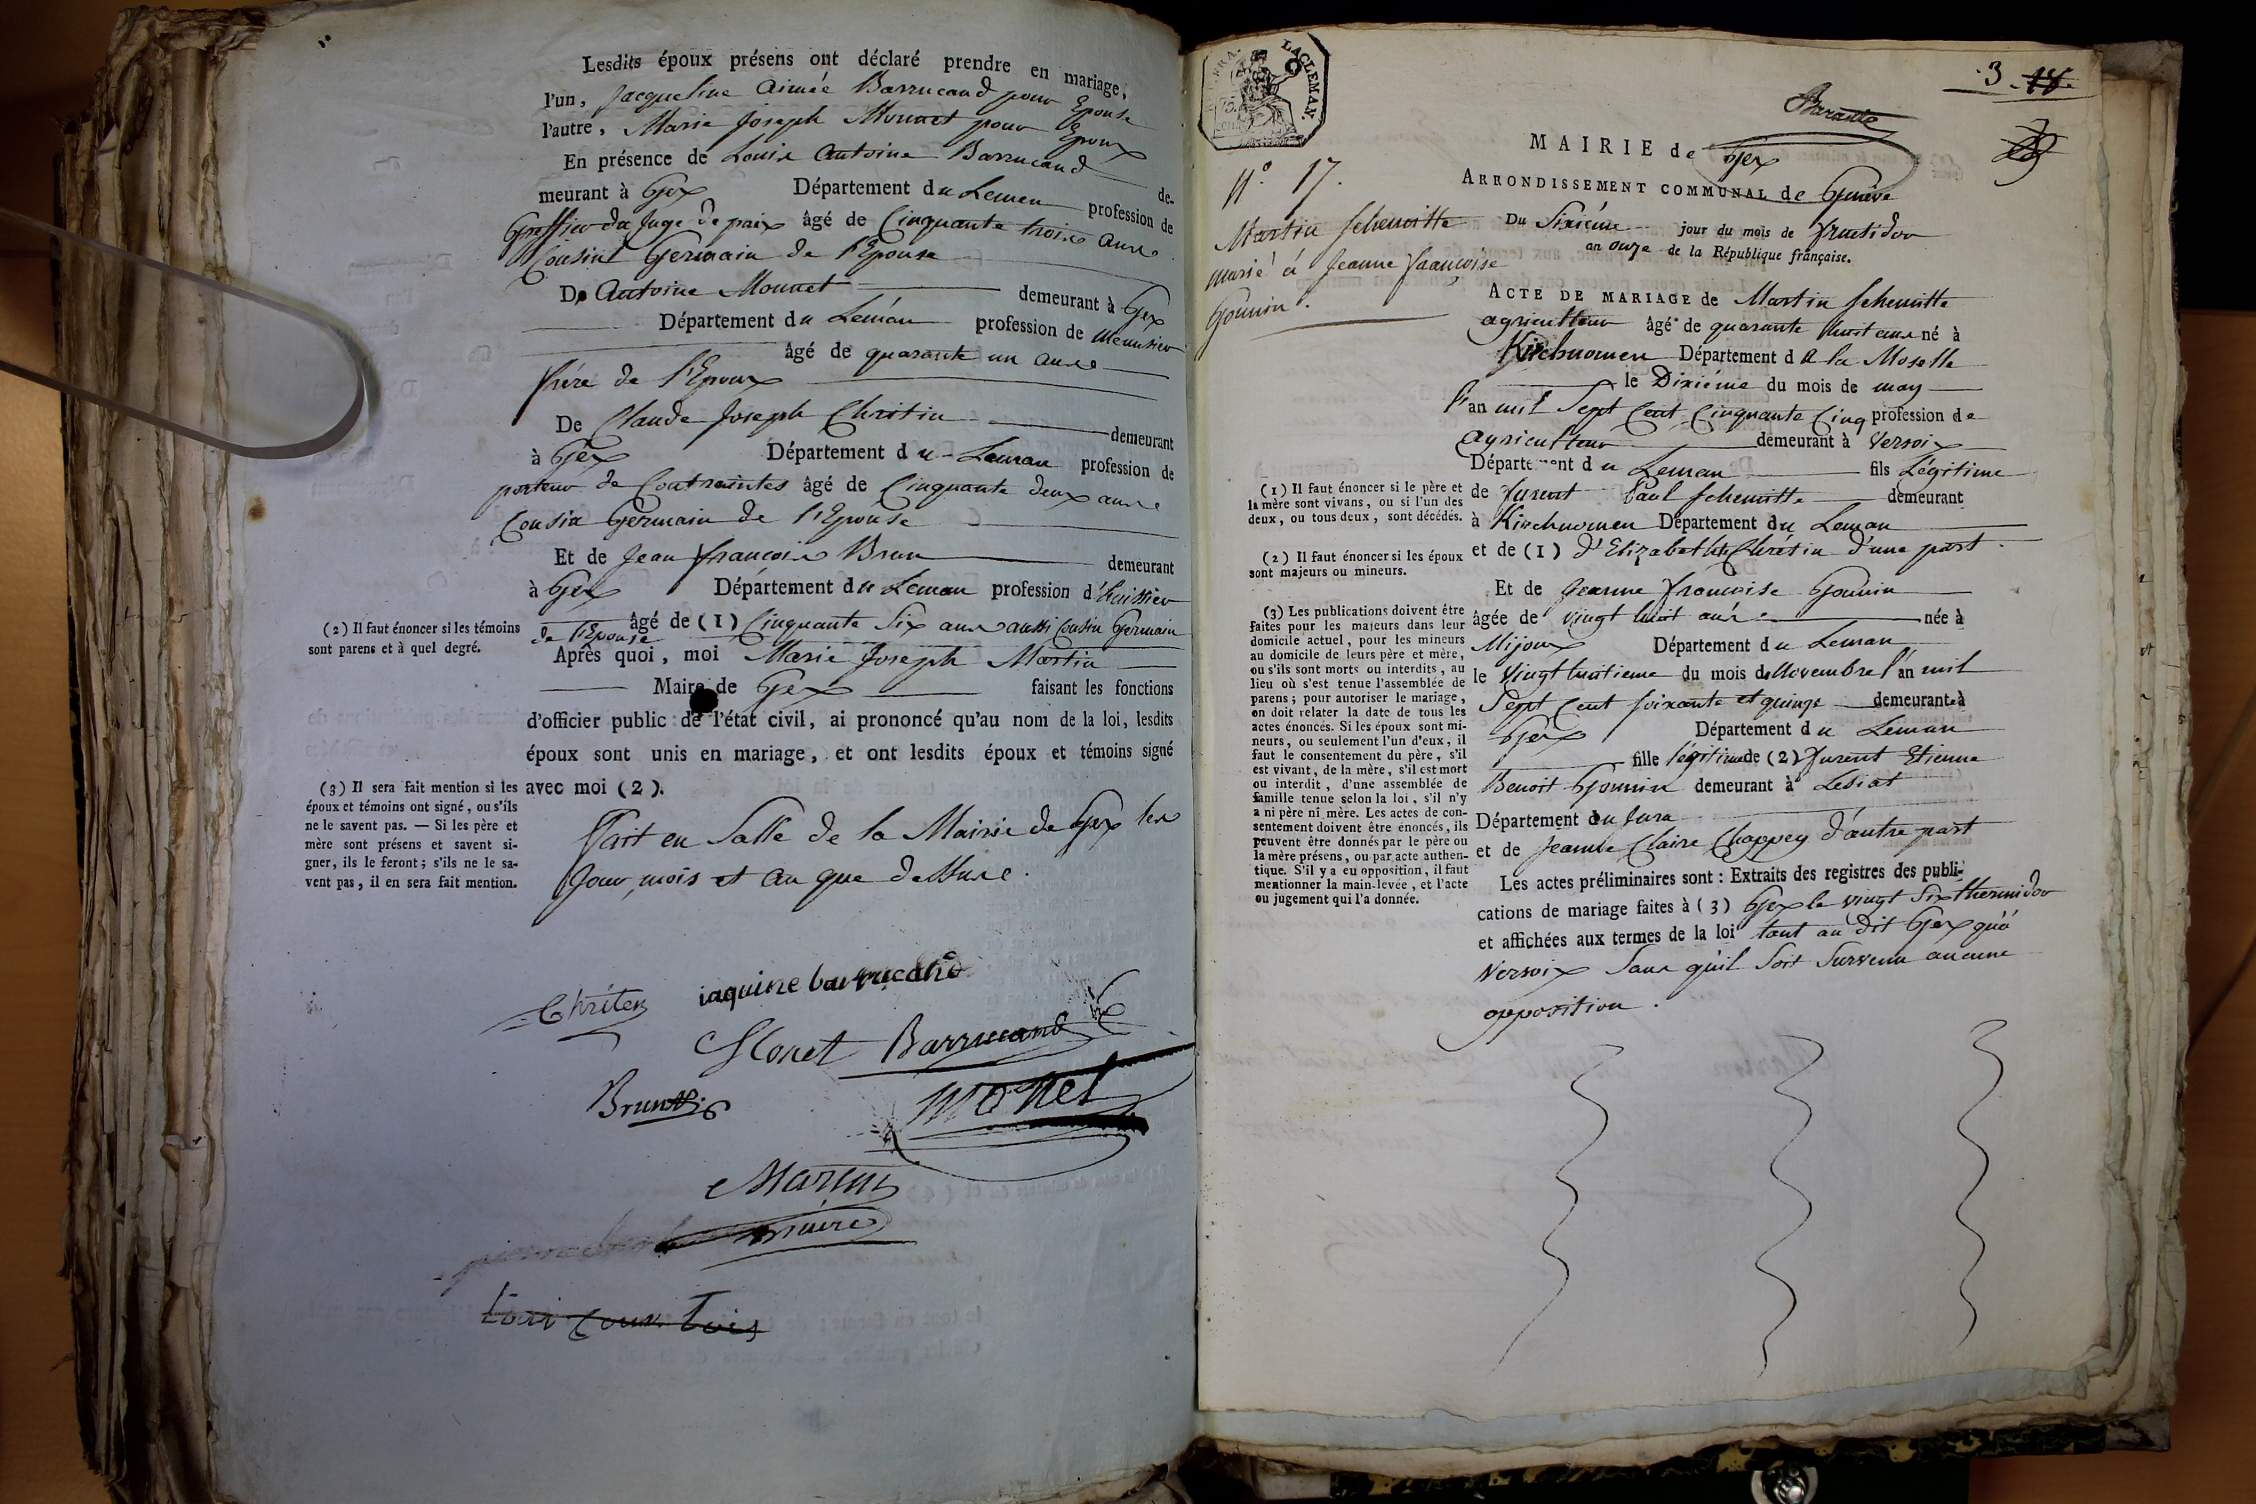 Lesdits époux présens ont déclaré prendre en mariage,
l'un, Jacqueline Aimée Barrucand pour Epouse
l'autre, Marie Joseph Monnet pour Epoux
En présence de Louis Antoine Barrucand de-
meurant à Gex Département du Leman profession de
Greffier du Juge de paix âgé de Cinquante trois ans
Cousin Germain de l'Epouse
De Antoine Monnet demeurant à Gex
Département du Léman profession de Menusier
âgé de quarante un ans
frére de l'Epoux
De Claude Joseph Christin demeurant
à Gex Département du Leman profession de
porteur de Contraintes âgé de Cinquante deux ans
Cousin Germain de l'Epouse
Et de Jean françois Brun demeurant
à Gex Département du Leman profession d'huissier
âgé de (1) Cinquante Six ans aussi Cousin Germain
de l'Epouse
Après quoi, moi Marie Joseph Martin
Maire de Gex faisant les fonctions
d'officier public de l'état civil, ai prononcé qu'au nom de la loi, lesdits
époux sont unis en mariage, et ont lesdits époux et témoins signé
avec moi (2).
(2) Il faut énoncer si les témoins
sont parens et à quel degré.
(3) Il sera fait mention si les
époux et témoins ont signé, ou s'ils
ne le savent pas. — Si les père et
mère sont présens et savent si-
gner, ils le feront; s'ils ne le sa-
vent pas, il en sera fait mention.
Fait en Salle de la Mairie de Gex les
Jour, mois et an que dessus.
Chriten
iaquine barrucand
Monet Barrucand
Brun
monet
Martin
maire
LACLEMAN.
3 18
Barante
MAIRIE de Gex
ARRONDISSEMENT COMMUNAL de Genève
N.° 17.
Martin Schemitte
marié à Jeanne françoise
Gounin.
Du Sixiéme jour du mois de fructidor
an onze de la République française.
ACTE DE MARIAGE de Martin Schemitte
agriculteur âgé de quarante huit ans né à
Kirchnomen Département de la Moselle
le Dixiéme du mois de may
l'an mil Sept Cent Cinquante Cinq profession de
agriculteur demeurant à Versoix
Département du Leman fils Légitime
de furent Paul Schemitte demeurant
à Kirchnomen Département du Leman
et de (1) d'Elizabeth Chrétin d'une part.
Et de Jeanne françoise Gounin
âgée de vingt huit ans née à
Mijoux Département du Leman
le vingt huitieme du mois de Novembre l'an mil
Sept Cent soixante et quinze demeurante à
Gex Département du Leman
fille légitime de (2) furent Etienne
Benoit Gounin demeurant à Lesiat
Département du Jura
et de Jeanne Claire Chappey d'autre part
Les actes préliminaires sont : Extraits des registres des publi-
cations de mariage faites à (3) Gex le vingt Six thermidor
et affichées aux termes de la loi tant au dit Gex qu'à
Versoix Sans qu'il Soit Survenu aucune
opposition.
(1) Il faut énoncer si le père et
la mère sont vivans, ou si l'un des
deux, ou tous deux, sont décédés.
(2) Il faut énoncer si les époux
sont majeurs ou mineurs.
(3) Les publications doivent être
faites pour les majeurs dans leur
domicile actuel, pour les mineurs
au domicile de leurs père et mère,
ou s'ils sont morts ou interdits, au
lieu où s'est tenue l'assemblée de
parens; pour autoriser le mariage,
on doit relater la date de tous les
actes énoncés. Si les époux sont mi-
neurs, ou seulement l'un d'eux, il
faut le consentement du père, s'il
est vivant, de la mère, s'il est mort
ou interdit, d'une assemblée de
famille tenue selon la loi, s'il n'y
a ni père ni mère. Les actes de con-
sentement doivent être énoncés, ils
peuvent être donnés par le père ou
la mère présens, ou par acte authen-
tique. S'il y a eu opposition, il faut
mentionner la main-levée, et l'acte
ou jugement qui l'a donnée.